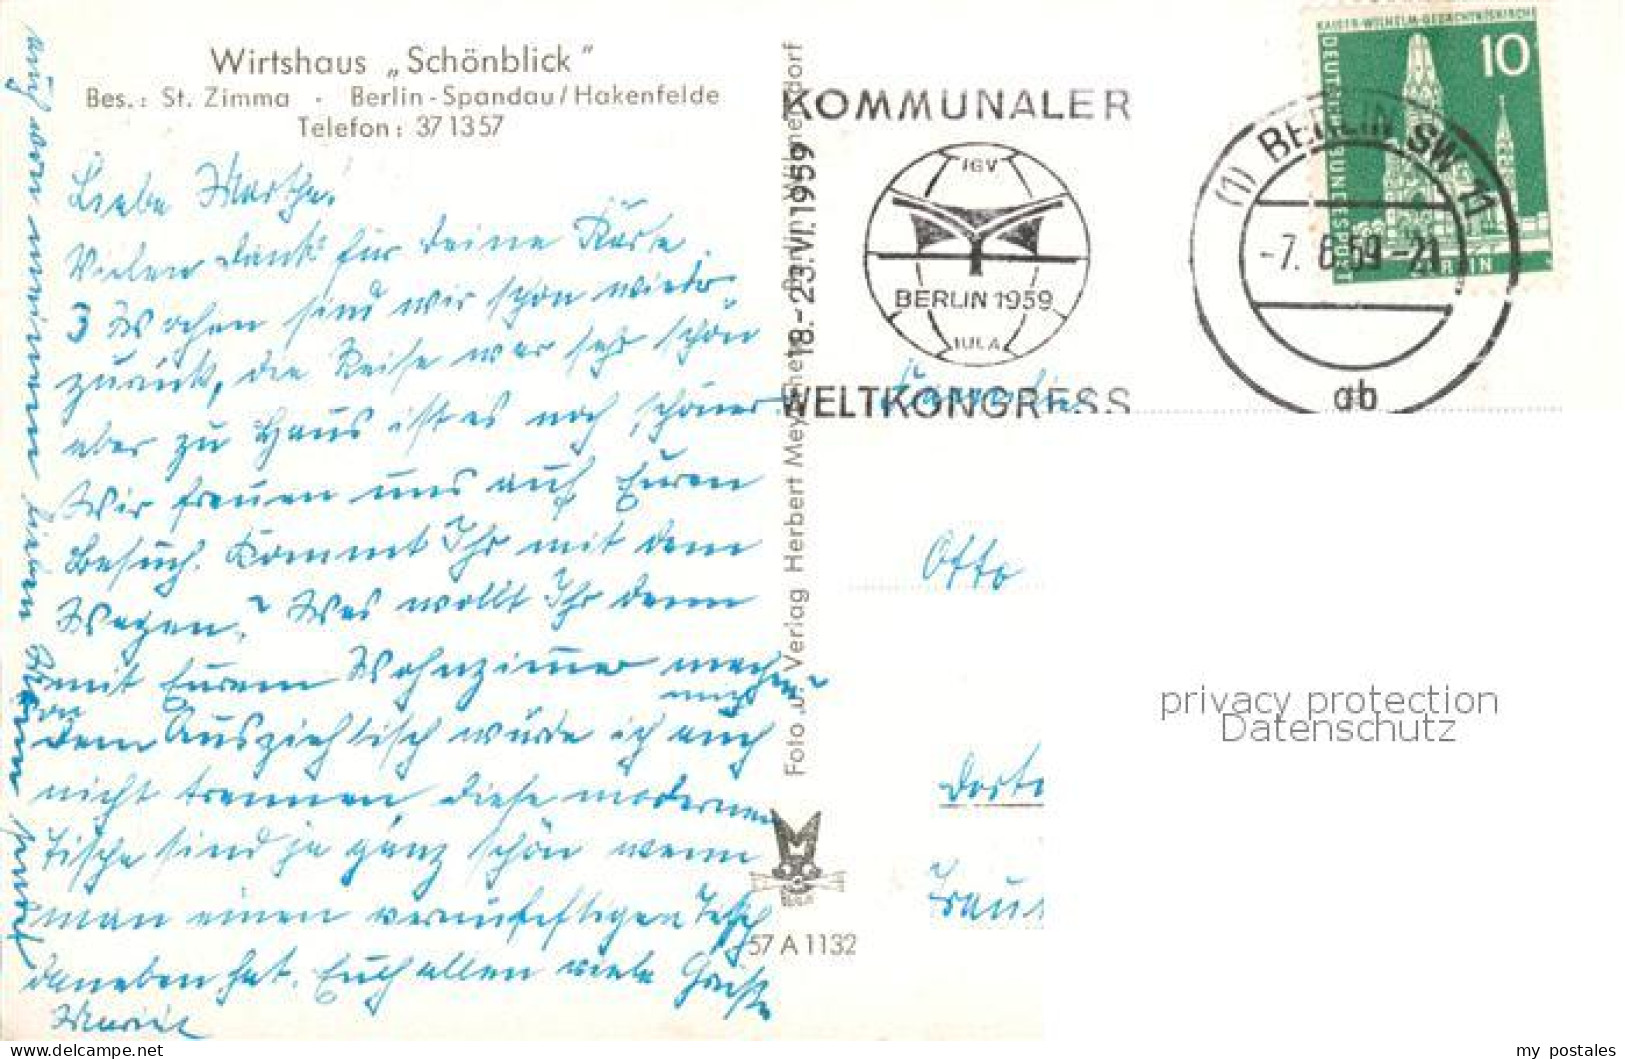 Wirtshaus „Schönblick"
Bes.: St. Zimma · Berlin-Spandau/Hakenfelde
Telefon: 37 13 57
Liebe Marthe.
Vielen Dank für Deine Karte.
3 Wochen sind wir schon wieder
zurück, die Reise war sehr schön
aber zu Haus ist es noch schöner.
Wir freuen uns auf Euren
Besuch. Kommt Ihr mit dem
Wagen? Was wollt Ihr denn
mit Eurem Wohnzimmer machen?
von dem Ausziehtisch würde ich mich auch
nicht trennen, diese modernen
Tische sind ja ganz schön wenn
man einen vernünftigen Tisch
daneben hat. Euch allen viele Grüße
auch von meinem lieben Mann
Foto u. Verlag Herbert Meyerheim Berlin-Wilmersdorf
57 A 1132
KOMMUNALER
IGV
BERLIN 1959
IULA
WELTKONGRESS
18.-23.VI.1959
KAISER-WILHELM-GEDÄCHTNISKIRCHE
10
DEUTSCHE BUNDESPOST
BERLIN
(1) BERLIN SW 11
-7. 6. 59 -21
ab
Familie
Otto
privacy protection
Datenschutz
my postales